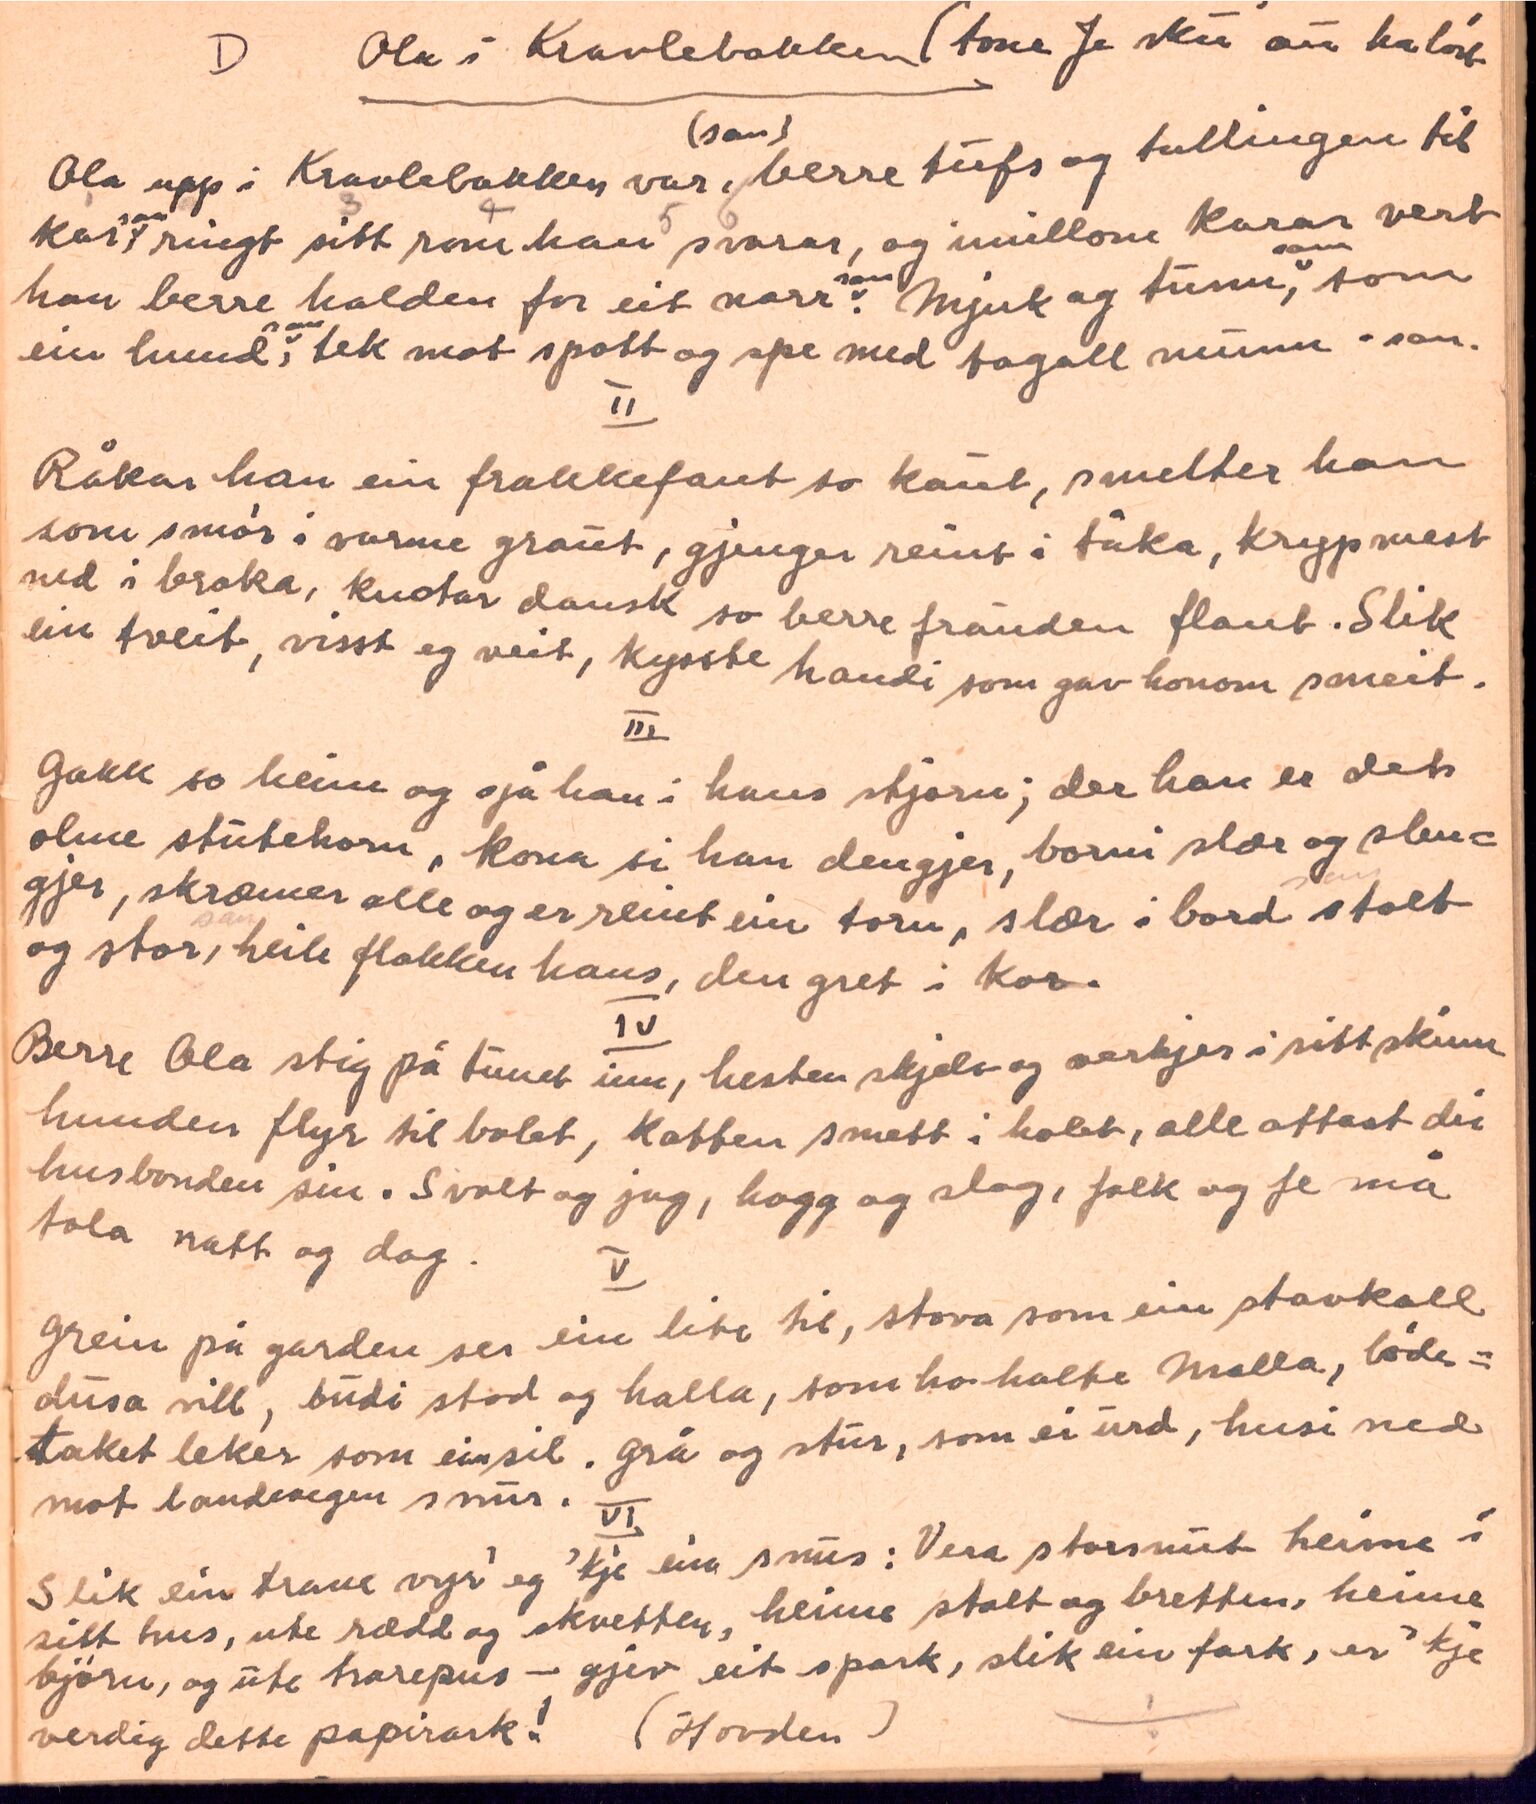 D Ola i Kravlebakken (tone Je sku au ha löst
(san)
Ola upp i Kravlebakken var, berre tufs og tullingen til
kar, san ringt sitt rom han svarar, og imillom karar vert
han berre halden for eit narr san. Mjuk og tunn, san som
ein hund, san tek mot spott og spe med tagall munn - san.
II
Råkar han ein frakkefant so kaut, smelter han
som smör i varme graut, gjenger reint i tåka, kryp mest
ned i broka, knotar dansk so berre frauden flaut. Slik
ein tveit, visst eg veit, kysste handi som gav honom smeit.
III
Gakk so heim og sjå han i hans stjorn; der han er det
olme stutehorn, kona si han dengjer, borni slær og slen=
gjer, skræmer alle og er reint ein torn, slær i bord san stolt
og stor, san heile flokken hans, den gret i kor.
IV
Berre Ola stig på tunet inn, hesten skjelv og verkjer i sitt skinn
hunden flyr til bolet, katten smett i holet, alle ottast dei
husbonden sin. Svolt og jag, hogg og slag, folk og fe må
tola natt og dag.
V
Grein på garden ser ein lite til, stova som ein stavkall
dusa vill, budi stod og halla, som ho halte Malla, löde=
taket leker som ein sil. Grå og stur, som ei urd, husi ned
mot landevegen snur.
VI
Slik ein trane vyr' eg 'kje ein snus: Vera storsnut heime i
sitt hus, ute rædd og skvetten, heime stolt og bretten, heime
björn, og ute trarepus - gjev eit spark, slik ein fark, er 'kje
verdig dette papirark! (Hovden)